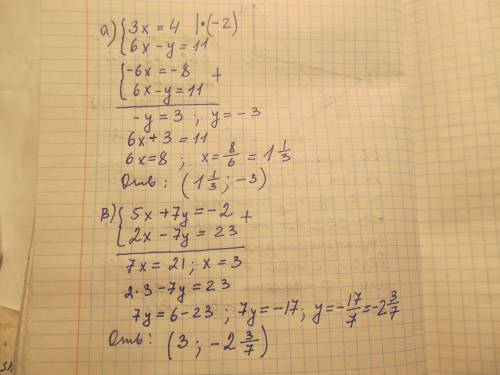 а) { 3x = 4 | • (-2)
6x - y = 11
{ -6x = -8 +
6x - y = 11
-y = 3 ; y = -3
6x + 3 = 11
6x = 8 ; x = 8/6 = 1 1/3
Отв: (1 1/3 ; -3)
в) { 5x + 7y = -2 +
2x - 7y = 23
7x = 21 ; x = 3
2 • 3 - 7y = 23
7y = 6 - 23 ; 7y = -17 ; y = -17/7 = -2 3/7
Отв: (3 ; -2 3/7)